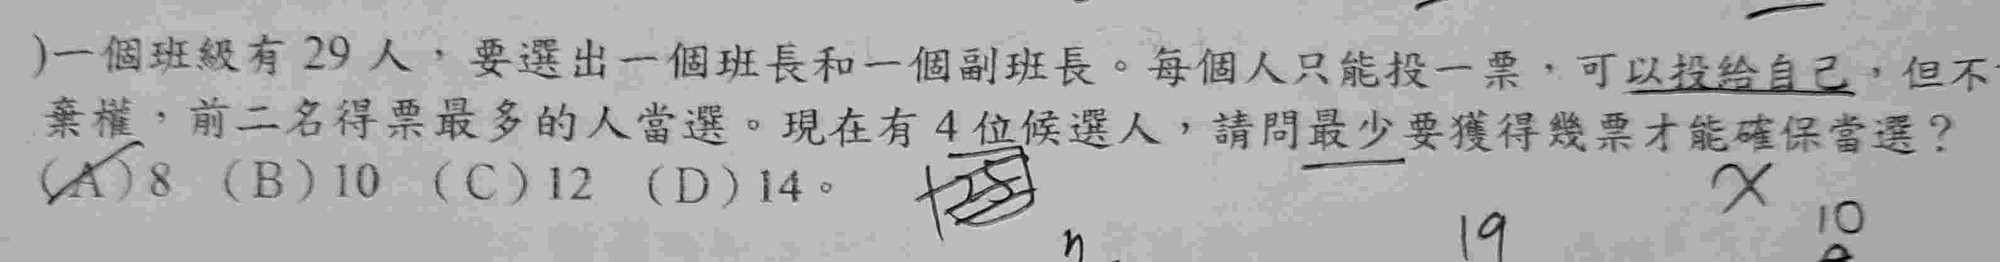 )一個班級有 29 人，要選出一個班長和一個副班長。每個人只能投一票，可以投給自己，但不
棄權，前二名得票最多的人當選。現在有 4 位候選人，請問最少要獲得幾票才能確保當選？
(A) 8 (B) 10 (C) 12 (D) 14。
19
10